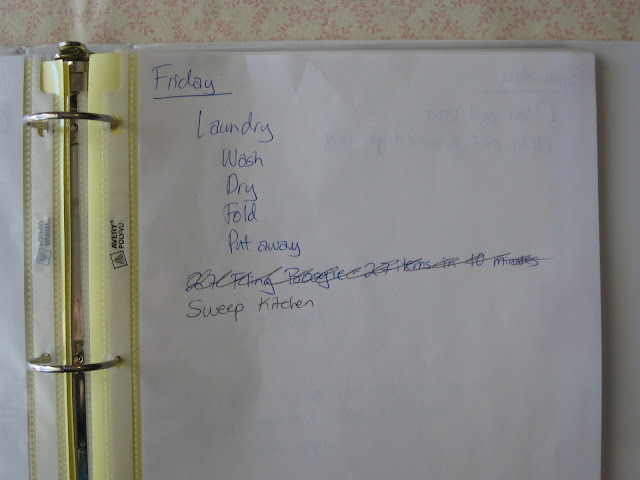 Friday
Laundry
Wash
Dry
Fold
Put away
Fling Boogie 27 items in 10 minutes
Sweep Kitchen
AVERY®
POLYVU